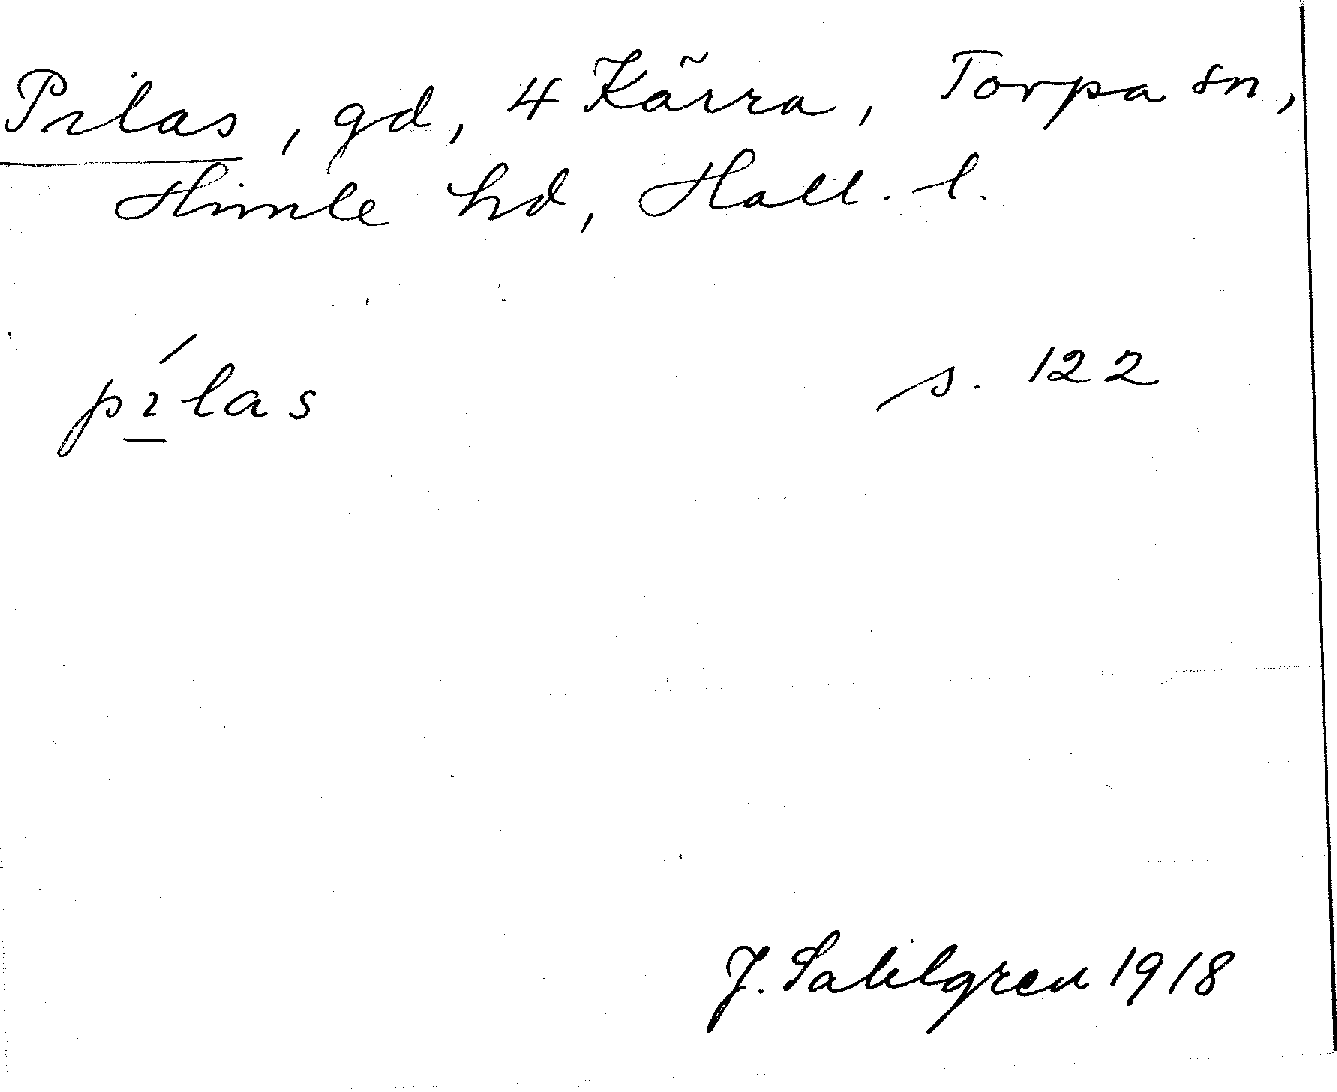 Pilas, gd, 4 Kärra, Torpa sn,
Himle hd, Hall. l.
pí̠las s. 122
J. Sahlgren 1918